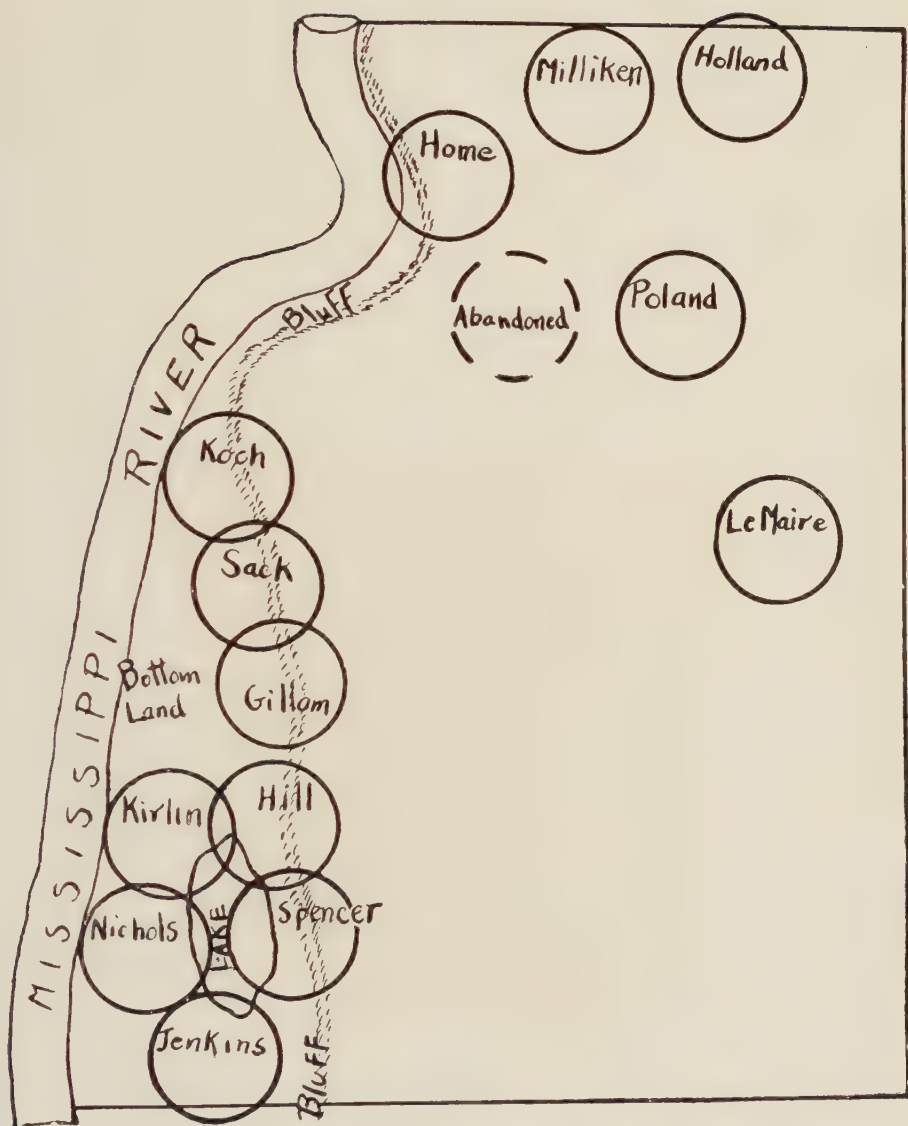 Milliken
Holland
Home
Bluff
Abandoned
Poland
MISSISSIPPI RIVER
Koch
LeMaire
Sack
Bottom
Land
Gillam
Kirlin
Hill
Nichols
LAKE
Spencer
Jenkins
Bluff